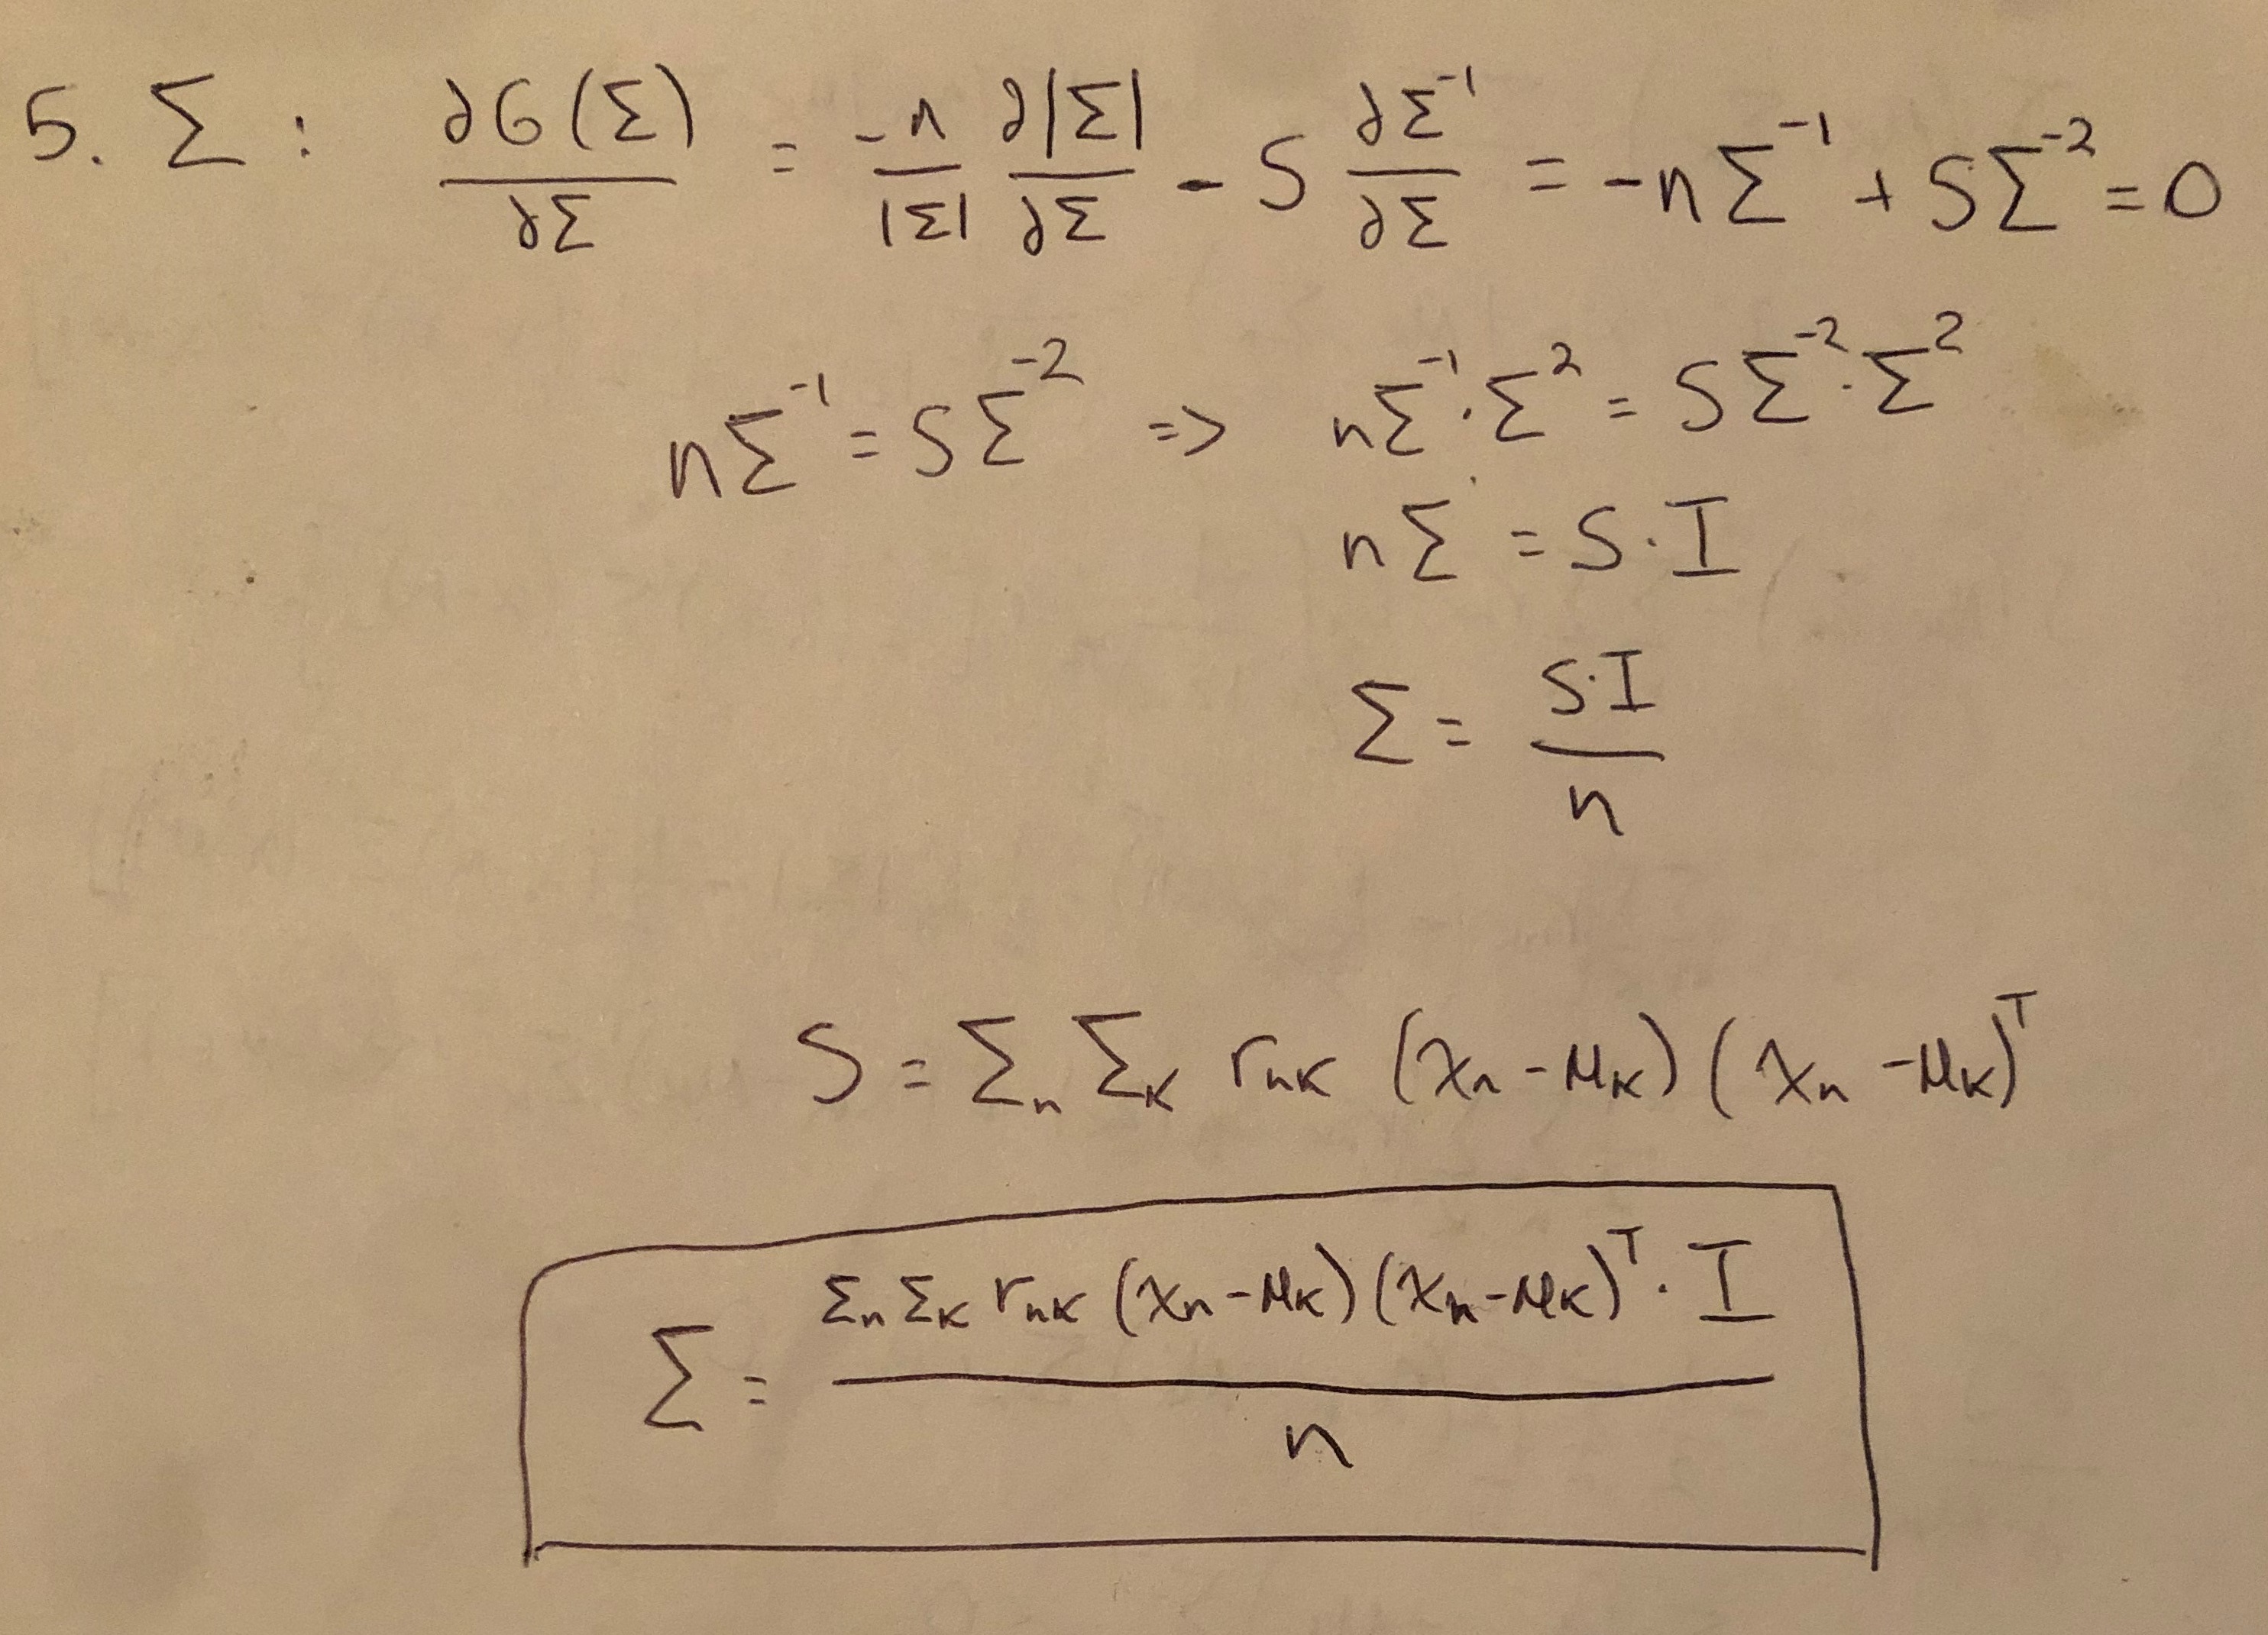 5. Σ : ∂G(Σ)/∂Σ = -n/|Σ| ∂|Σ|/∂Σ - S ∂Σ⁻¹/∂Σ = -nΣ⁻¹ + SΣ⁻² = 0
nΣ⁻¹ = SΣ⁻² => nΣ⁻¹·Σ² = SΣ⁻²·Σ²
nΣ = S·I
Σ = S·I/n
S = Σₙ Σ_K r_nK (x_n - μ_K)(x_n - μ_K)ᵀ
Σ = Σₙ Σ_K r_nK (x_n - μ_K)(x_n - μ_K)ᵀ · I / n